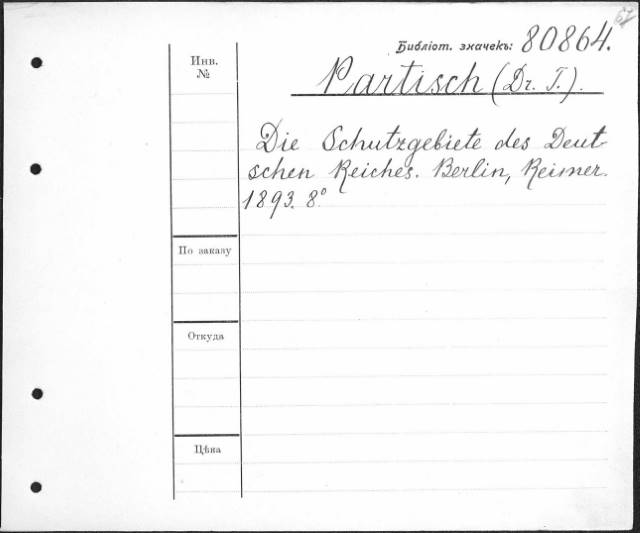 Библіот. значекъ: 80864.
Инв.
№
Partisch (Dr. J.).
Die Schutzgebiete des Deut-
schen Reiches. Berlin, Reimer.
1893. 8°.
По заказу
Откуда
Цѣна